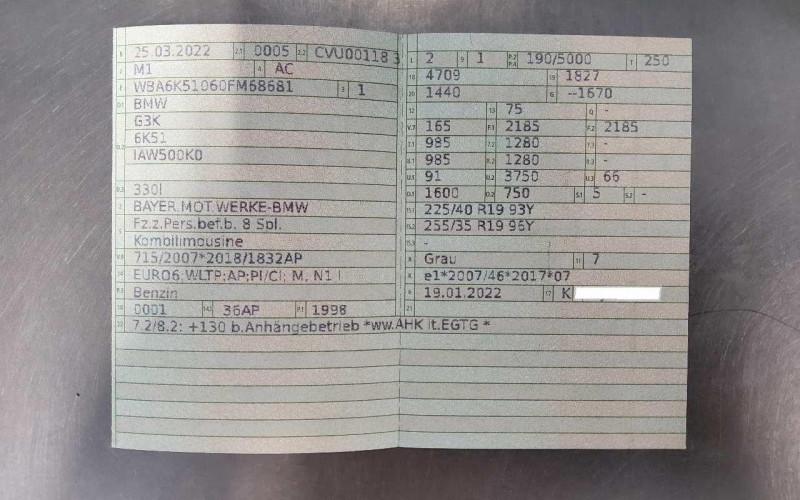 25 03.2022 2.1 0005 2.2 CVU00118 3
M1 4 AC
WBA6K51060FM68681 3 1
BMW
G3K
6K51
IAW500K0
330I
BAYER.MOT.WERKE-BMW
Fz.z.Pers.bef.b. 8 Spl.
Kombilimousine
715/2007*2018/1832AP
EURO6;WLTP;AP;PI/CI; M, N1 I
Benzin
0001 36AP P.1 1998
22 7.2/8.2: +130 b.Anhängebetrieb *ww.AHK lt.EGTG *
L 2 9 1 P.2 P.4 190/5000 T 250
18 4709 19 1827
20 1440 G --1670
12 13 75 Q -
V.7 165 F.1 2185 F.2 2185
7.1 985 7.2 1280 7.3 -
8.1 985 8.2 1280 8.3 -
U.1 91 U.2 3750 U.3 66
O.1 1600 O.2 750 S.1 5 S.2 -
15.1 225/40 R19 93Y
15.2 255/35 R19 96Y
15.3 -
R Grau 11 7
K e1*2007/46*2017*07
6 19.01.2022 17 K
21